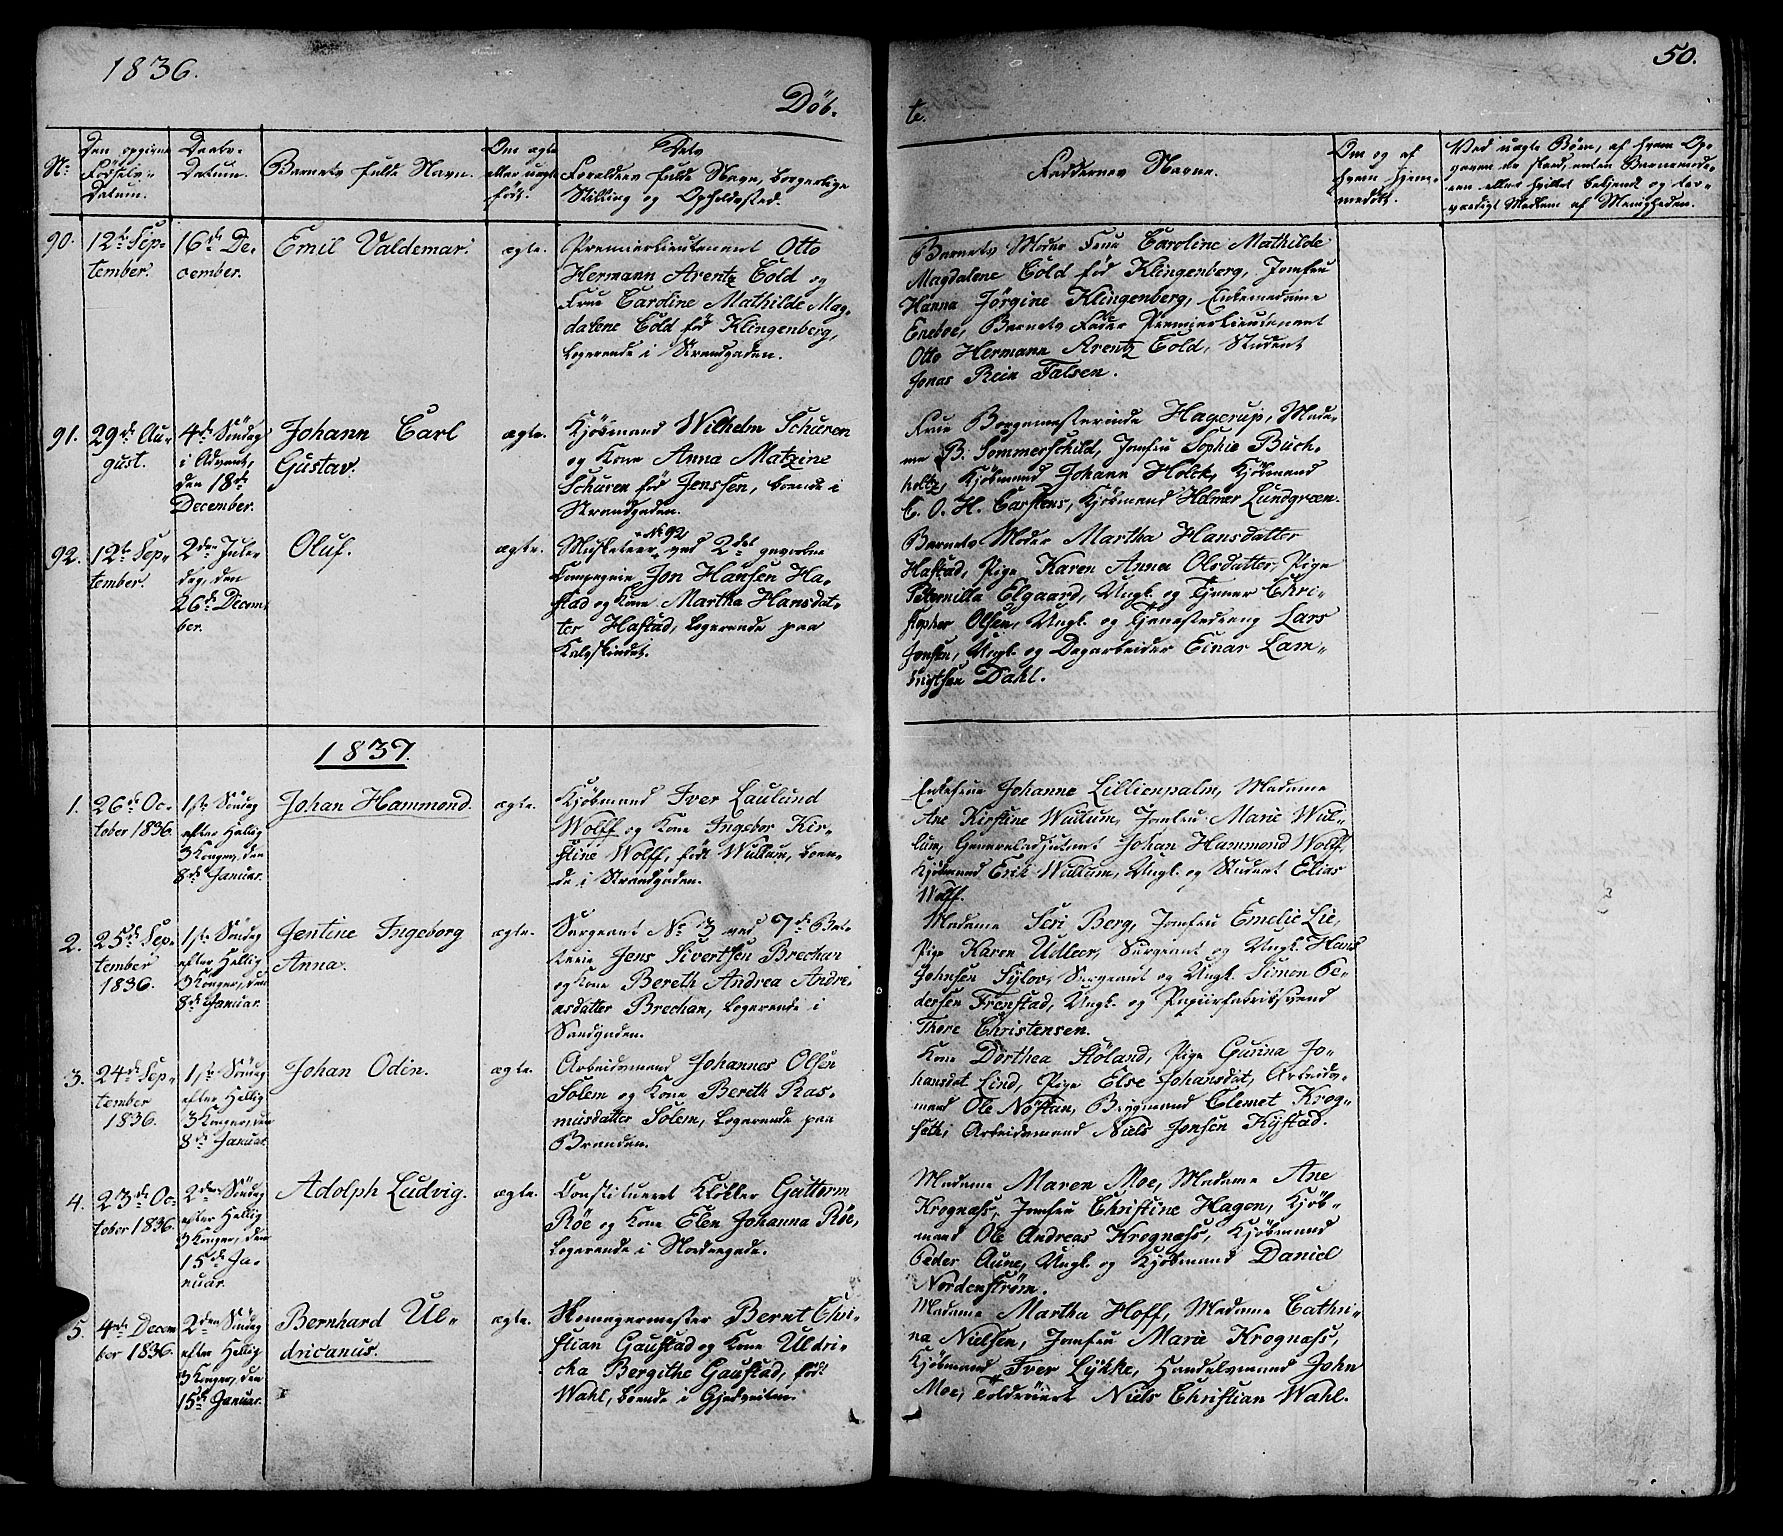 1836.
50.
Döb-
te.
No
Den opgivne Fødsels-Datum.
Daabs-Datum.
Barnets fulde Navn.
Om ægte eller uægte født.
Dets Forældres fulde Navn, borgerlige Stilling og Opholdssted.
Faddernes Navne.
Om og af hvem hjemmedøbt.
Ved uægte Børn, af hvem Op-
givende er skeed, enten Barnemode-
ren eller hvilket bekjendt og tro-
værdigt Medlem af Menigheden.
90.
12te Sep-
tember.
16de De-
cember.
Emil Valdemar.
ægte.
Premierlieutenant Otto
Hermann Arentz Cold og
Frue Caroline Mathilde Mag-
dalene Cold fød Klingenberg,
logerende i Strandgaden.
Barnets Moder Frue Caroline Mathilde
Magdalene Cold fød Klingenberg, Jomfru
Hanna Jörgine Klingenberg, Enkemadame
Eneboe, Barnets Fader Premierlieutenant
Otto Hermann Arentz Cold, Student
Jonas Rein Falsen.
91.
29de Au-
gust.
4de Søndag
i Advent,
den 18de
December.
Johann Carl
Gustav.
ægte.
Kjøbmand Wilhelm Schüren
og Kone Anna Matzine
Schüren fød Jenssen, boende i
Strandgaden.
Frue Borgemesterinde Hagerup, Mada-
me B. Sommerschild, Jomfru Sophie Buch-
holtz, Kjøbmand Johann Holck, Kjøbmand
C. O. H. Carstens, Kjøbmand Helmer Lundgreen.
92.
12te Sep-
tember.
2den Jule-
dag, den
26de Decem-
ber.
Oluf.
ægte.
No 92
Musketeer ved 2det gevorbne
Compagnie Jon Hansen Ha-
stad og Kone Martha Hansdat-
ter Hastad, logerende paa
Kalvskindet.
Barnets Moder Martha Hansdatter
Hastad, Pige Karen Anna Olsdatter, Pige
Peternilla Elgaard, Ungk. og Tjener Chri-
stopher Olsen, Ungk. og Tjenestedreng Lars
Jonsen, Ungk. og Dagarbeider Einar Lam-
brigtsen Dahl.
1837.
1.
26de Oc-
tober 1836.
1ste Søndag
efter Hellig
3 Konger, den
8de Januar.
Johan Hammond.
ægte.
Kjøbmand Iver Laulund
Wolff og Kone Ingebor Kir-
stine Wolff, født Wullum, boen-
de i Strandgaden.
Enkefrue Johanne Lillienpalm, Madame
Ane Kirstine Wullum, Jomfru Marie Wul-
lum, Generaladjutant Johan Hammond Wolff,
Kjøbmand Erik Wullum, Ungk. og Student Elias
Wolff.
2.
25de Sep-
tember
1836.
1ste Søndag
efter Hellig
3 Konger, den
8de Januar.
Jentine Ingeborg
Anna.
ægte.
Sergeant No 3 ved 7de Bat-
terie Jens Sivertsen Brechan
og Kone Bereth Andrea Andre-
asdatter Brechan, logerende i
Sandgaden.
Madame Seri Berg, Jomfru Emelie Lie,
Pige Karen Udleer, Sergeant og Ungk. Hans
Johnsen Sylov, Sergeant og Ungk. Simon Pe-
dersen Frenstad, Ungk. og Papiirfabriksvend
Thore Christensen.
3.
24de Sep-
tember
1836.
1ste Søndag
efter Hellig
3 Konger, den
8de Januar.
Johan Odin.
ægte.
Arbeidsmand Johannes Olsen
Solem og Kone Bereth Ras-
musdatter Solem, logerende paa
Branden.
Kone Dorthea Stöland, Pige Gurina Jo-
hansdat Lind, Pige Else Johansdat, Arbeids-
mand Ole Nöstan, Brygmand Clemet Krog-
sæth, Arbeidsmand Niels Jonsen Kystad.
4.
23de Oc-
tober 1836.
2den Søndag
efter Hellig
3 Konger, den
15de Ja-
nuar.
Adolph Ludvig.
ægte.
Constitueret Klokker Guttorm
Röe og Kone Elen Johanna Röe,
logerende i Nordregade.
Madame Maren Moe, Madame Ane
Krognæss, Jomfru Christine Hagen, Kjøb-
mand Ole Andreas Krognæss, Kjøbmand
Peder Aune, Ungk. og Kjøbmand Daniel
Nordenström.
5.
4de Decem
ber 1836.
2den Søndag
efter Hellig
3 Konger, den
15de Januar.
Bernhard Ul-
dricanus.
ægte.
Skomagermester Bernt Chri-
stian Gaustad og Kone Uldri-
cha Bergithe Gaustad, født
Wahl, boende i Gjedveiten.
Madame Martha Hoff, Madame Cathri-
na Nielsen, Jomfru Marie Krognæss,
Kjøbmand Iver Lykke, Handelsmand John
Moe, Toldrorer Niels Christian Wahl.